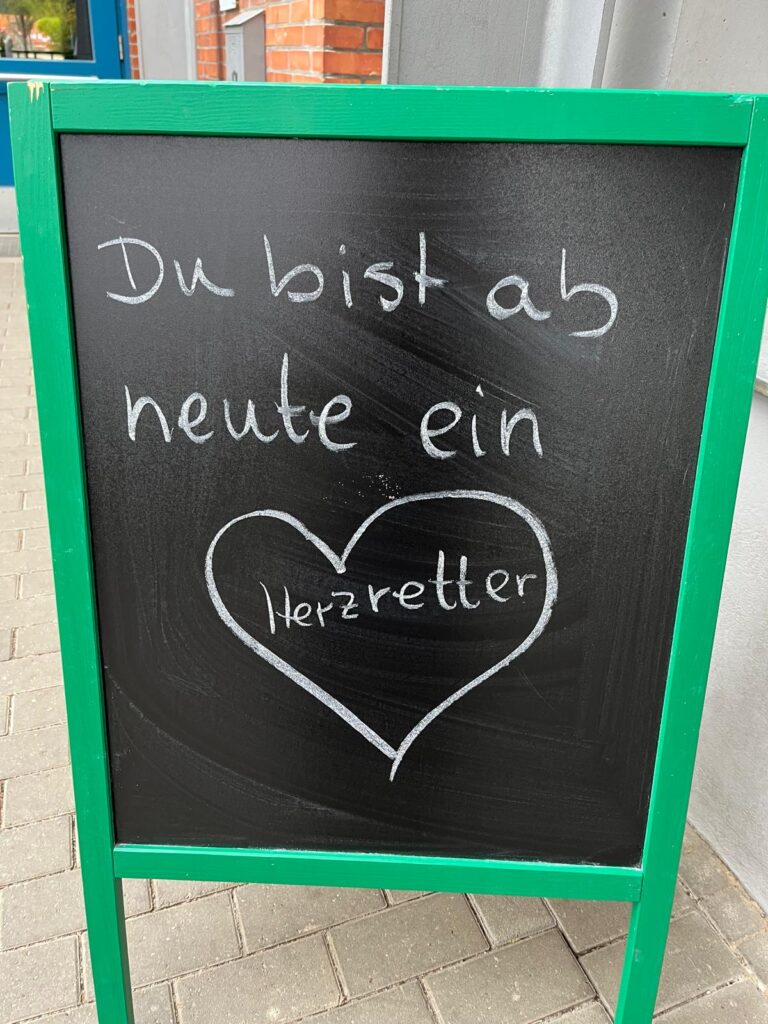 Du bist ab
heute ein
Herzretter